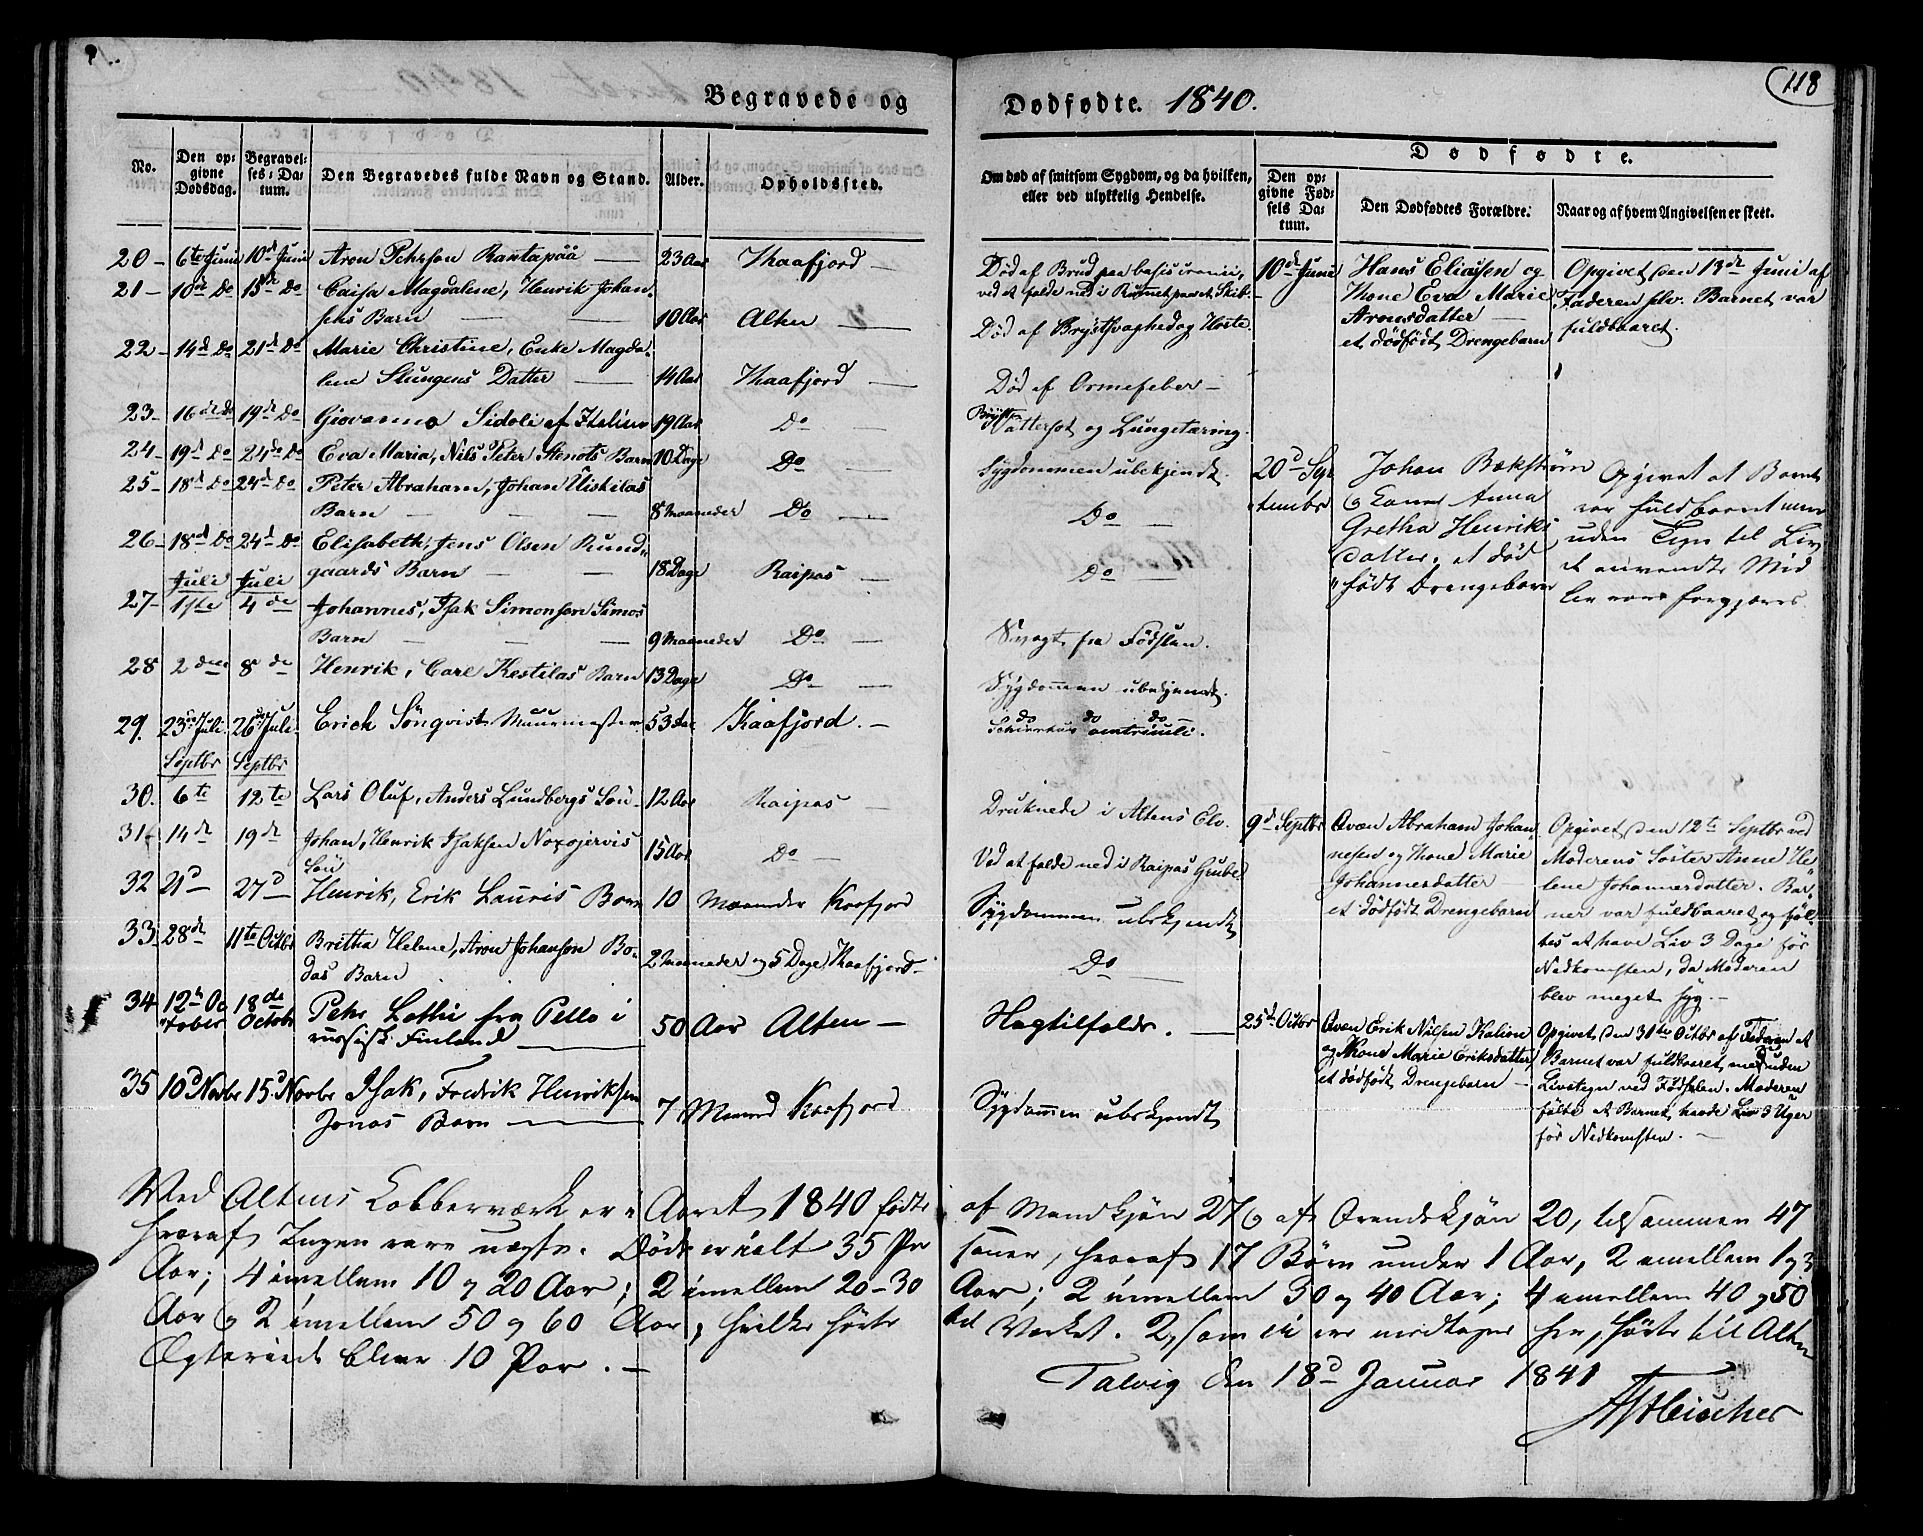 118
Begravede og Dødfødte. 1840.
No.
Den op-
givne
Dødsdag.
Begravel-
ses-Da-
tum.
Den Begravedes fulde Navn og Stand.
Alder.
Opholdssted.
Om død af smitsom Sygdom, og da hvilken,
eller ved ulykkelig Hendelse.
Dødfødte.
Den op-
givne Fød-
sels Da-
tum.
Den Dødfødtes Forældre.
Naar og af hvem Angivelsen er skeet.
20 6te Juni 10de Juni Aron Pehrson Rantapää 23 Aar Kaafjord
Død af Brud paa basis cranii,
ved at falde ned i Rummet paa et Skib.
21 10de Do 13de Do Caisa Magdalene, Henrik Johan-
sens Barn 10 Aar Alten
Død af Brystsvaghed og Hoste.
22 14d Do 21d Do Marie Christine, Enke Magda-
lene Slungens Datter 14 Aar Kaafjord
Død af Ormefeber
23 16de Do 19de Do Giovanno Sidoli af Italien 19 Aar Do
Bryst-
Vattersot og Lungetæring.
24 19d Do 24de Do Eva Maria, Nils Peter Stenots Barn 10 Dage Do
Sygdommen ubekjendt.
25 18d Do 24d Do Peter Abraham, Johan Niskilas
Barn 8 Maaneder Do
Do
26 18d Do 24d Do Elisabeth, Jens Olsen Rund-
gaards Barn 18 Dage Raipas
Do
Juli Juli
27 1ste 4de Johannes, Isak Simonsen Simos
Barn 9 Maaneder Do
Svagt fra Fødslen.
28 2den 8de Henrik, Carl Kestilas Barn 13 Dage Do
Sygdommen ubekjendt.
29. 23de Juli 26de Juli Erich Sönqvist Muurmester 53 Aar Kaafjord.
do do do
Schirrhus ventriculi.
Septbr Septbr
30. 6te 12te Lars Oluf, Anders Lundbergs Søn 12 Aar Raipas
Druknede i Altens Elv.
31 14de 19de Johan, Henrik Isaksen Noxojervis
Søn 15 Aar Do
Ved at falde ned i Raipas Grube
32 21d 27d Henrik, Erik Lauris Barn 10 Maaneder Kaafjord
Sygdommen ubekjendt
33 28de 11te Octbr Britha Helene, Aron Johanson Bo-
das Barn 2 Maaneder og 5 Dage Kaafjord
Do
34 12te Oc-
tober 18de
Octobr Pehr Lathi fra Pello i
russisk Finland 50 Aar Alten
Slagtilfælde.
35 10d Novbr 15d Novbr Isak, Fredrik Henriksen
Jonas Barn 7 Maaned Kaafjord
Sygdommen ubekjendt
10de Juni
Hans Eliassen og
Kone Eva Marie
Aronsdatter
et dødfødt Drengebarn
Opgivet den 13de Juni af
Faderen selv. Barnet var
fuldbaaret.
20d Sep-
tembr
Johan Bækström
og Kone Anna
Gretha Henriks
datter, et død
født Drengebarn
Opgivet at Barnet
var fuldbaaret men
uden Tegn til Liv
de anvendte Mid
ler vare forgjeves.
9d Septbr
Qvæn Abraham Johan-
nesen og Kone Marie
Johannesdatter
et dødfødt Drengebarn
Opgivet den 12te Septbr ved
Moderens Søster Anne He-
lene Johannesdatter. Bar-
net var fuldbaaret og føl-
tes at have Liv 3 Dage før
Nedkomsten, da Moderen
blev meget syg.
25de Octbr
Qvæn Erik Nilsen Kalion
og Kone Marie Eriksdatter
et dødfødt Drengebarn
Opgivet den 31te Octbr af Faderen at
Barnet var fuldbaaret, men uden
Livstegn ved Fødselen. Moderen
følte at Barnet havde Liv 3 Uger
før Nedkomsten.
Ved Altens Kobberværk er i Aaret 1840 fødte af Mandkjøn 27 og af Qvindekjøn 20, tilsammen 47
hvoraf Ingen vare uægte. Døde er ialt 35 Per
soner, hvoraf 17 Børn under 1 Aar, 2 imellem 1 og 3
Aar; 4 imellem 10 og 20 Aar; 2 imellem 20-30 Aar; 2 imellem 30 og 40 Aar; 4 imellem 40 og 50
Aar og 2 imellem 50 og 60 Aar, hvilke hørte til Verket. 2, som ere medtagne her, hørte til Alten
Ægteviede bleve 10 Par.
Talvig den 18d Januar 1841